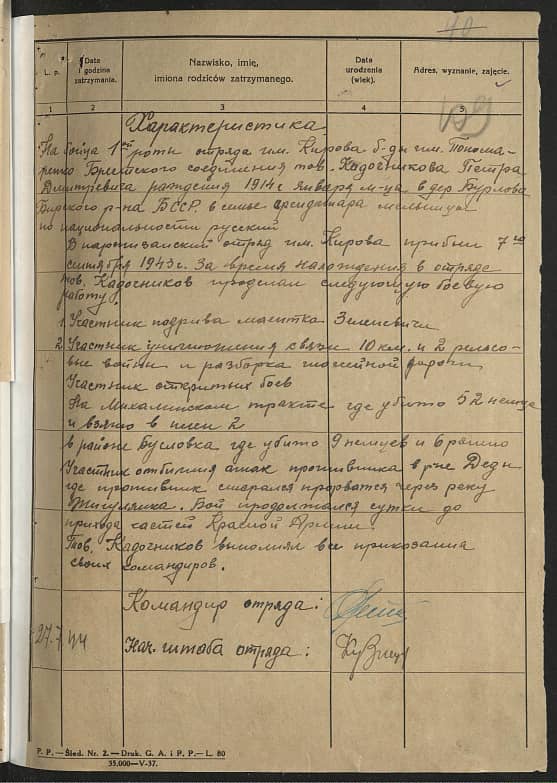 40
L. p.
Data i godzina zatrzymania.
Nazwisko, imię, imiona rodziców zatrzymanego.
Data urodzenia (wiek).
Adres, wyznanie, zajęcie.
1 2 3 4 5
Характеристика
На бойца 1ой роты отряда им. Кирова б-ды им. Понома-
ренко Брестского соединения тов. Кадочникова Петра
Дмитриевича рождения 1914 г января м-ца в дер Бурлова
Бирского р-на БССР. в семье арендатара мельницы
по национальности русский
В партизанский отряд им. Кирова прибыл 7го
сентября 1943 г. За время нахождения в отряде
тов. Кадочников проделал следующую боевую
работу.
1. Участник подрива маентка Зеленевичи
2. Участник уничтожения связи 10 км. и 2 рельсо-
вые войны и разборка шосейной дороги
Участник открытых боев
На Михалинском тракте где убито 52 немца
и взято в плен 2
в районе Бусловка где убито 9 немцев и 6 ранено
Участник отбития атак противника в р-не
где противник старался прорватся через реку
Жигулянка. Бой продолжался сутки до
прихода частей Красной Армии
Тов. Кадочников выполнял все приказания
своих командиров.
Командир отряда:
27.7 44 Нач. штаба отряда:
P. P. — Śled. Nr. 2. — Druk. G. A. i P. P. — L. 80
35.000—V-37.